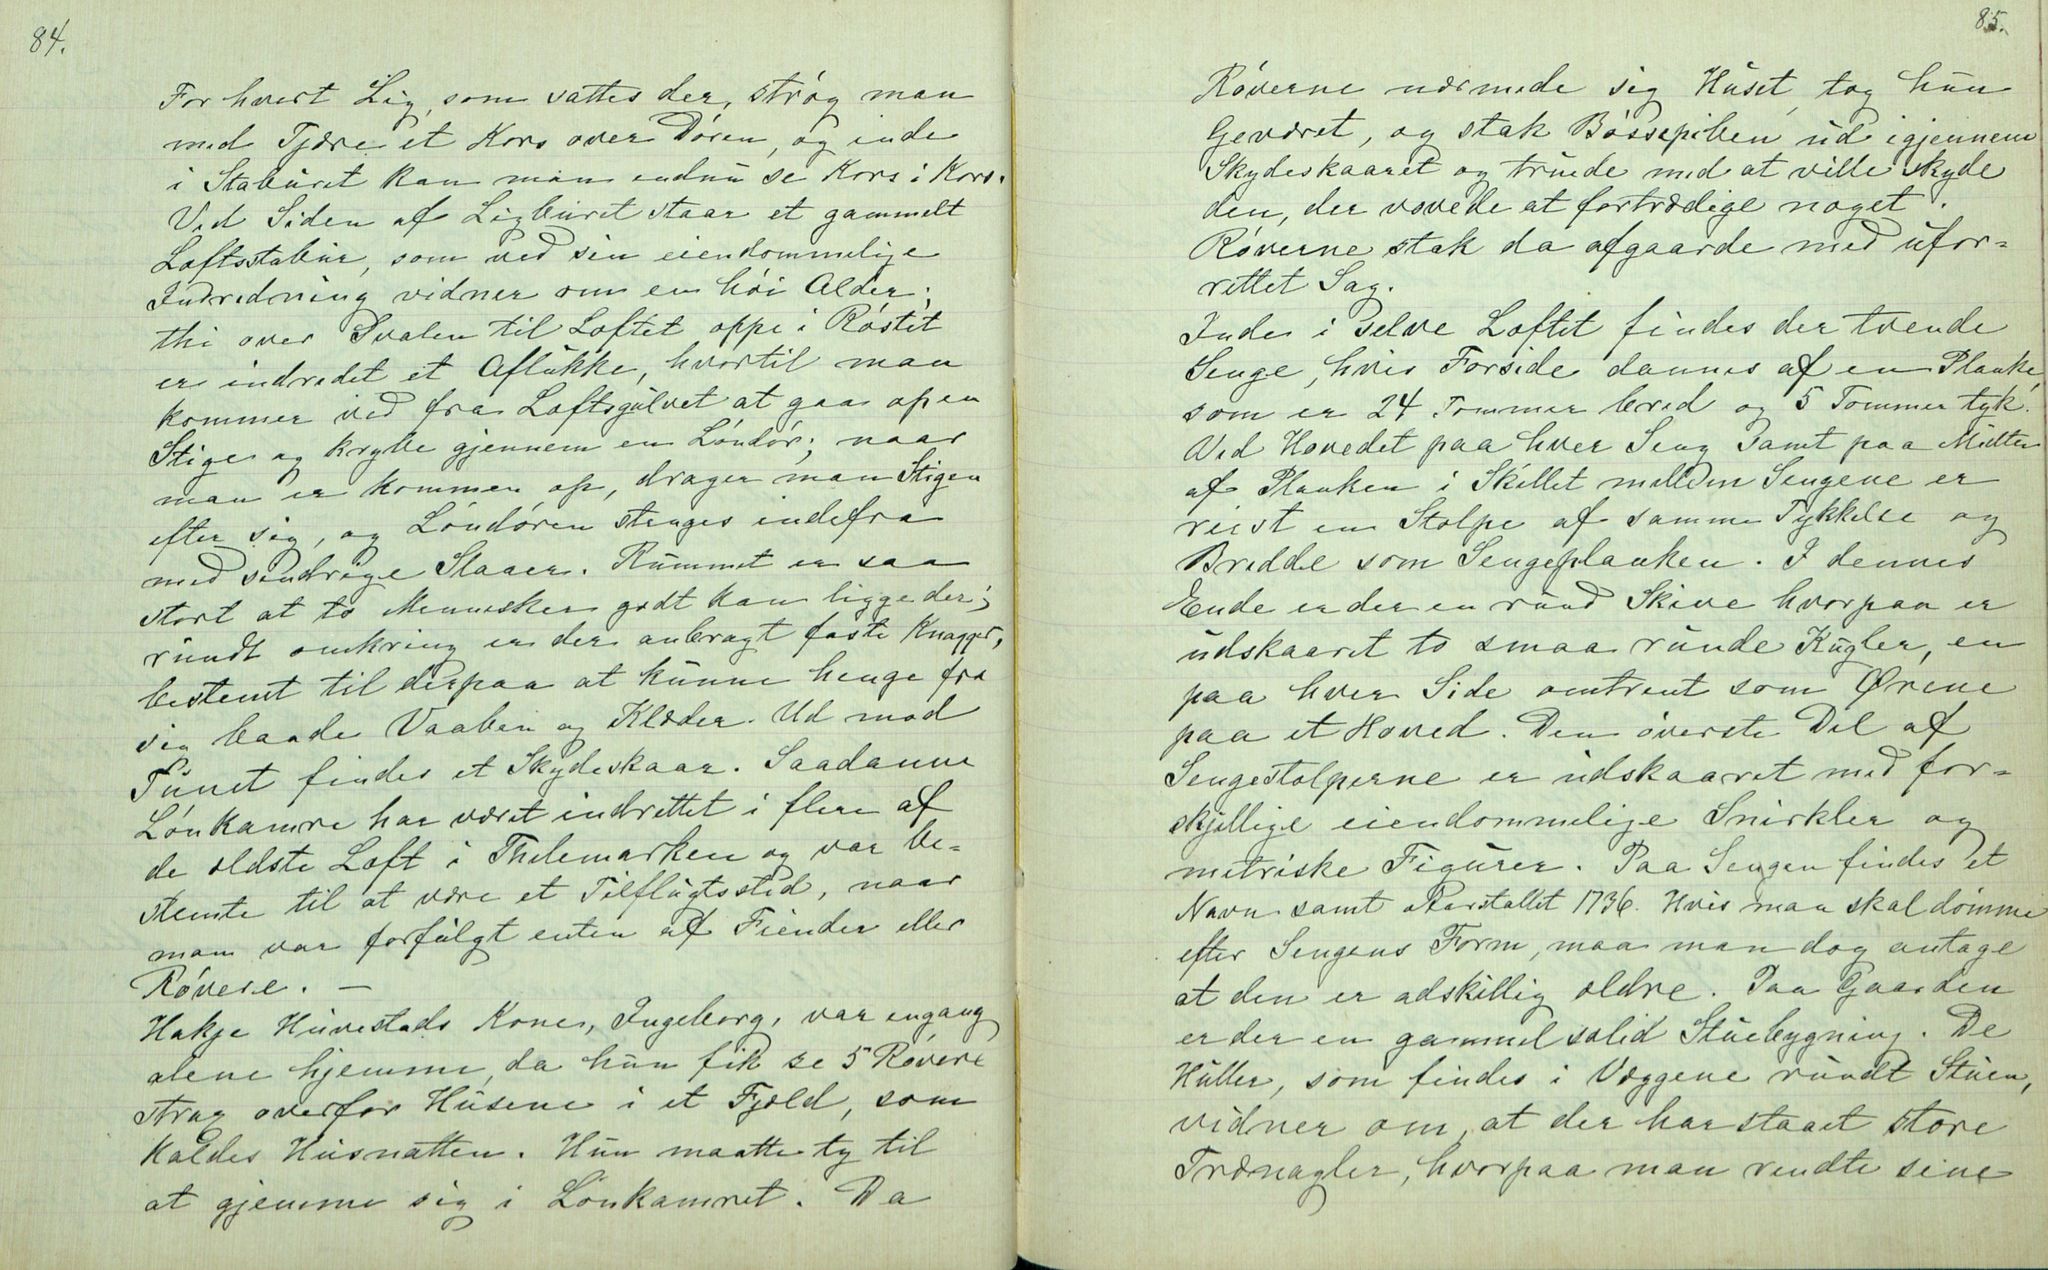 84.
For hvert Lig, som sattes der, strøg man
med Tjære et Kors over Døren, og inde
i Staburet kan man endnu se Kors i Kors.
Ved Siden af Ligburet staar et gammelt
Loftsstabur, som ved sin eiendommelige
Indredning vidner om en høi Alder;
thi over Svalen til Loftet oppe i Røstet
er indredet et Aflukke, hvortil man
kommer ved fra Loftsgulvet at gaa op en
Stige og krybe gjennem en Løndør; naar
man er kommen op, drager man Stigen
efter sig, og Løndøren stenges indefra
med sindrige Slaaer. Rummet er saa
stort at to Mennesker godt kan ligge der;
rundt omkring er der anbragt faste Knagger,
bestemt til derpaa at kunne henge fra
sig baade Vaaben og Klæder. Ud mod
Tunet findes et Skydeskaar. Saadanne
Lønkamre har været indrettet i flere af
de ældste Loft i Thelemarken og var be-
stemte til at være et Tilflugtssted, naar
man var forfulgt enten af Fiender eller
Røvere. —
Hakje Huvestads Kone, Ingeborg, var engang
alene hjemme, da hun fik se 5 Røvere
strax overfor Husene i et Fjæld, som
kaldes Husnatten. Hun maatte ty til
at gjemme sig i Lønkamret. Da
85.
Røverne nærmede sig Huset, tog hun
Geværet, og stak Bøssepiben ud igjennem
Skydeskaaret og truede med at ville skyde
den, der vovede at fortrædige noget.
Røverne stak da afgaarde med ufor-
rettet Sag.
Inde i selve Loftet findes der tvende
Senge, hvis Forside dannes af en Planke,
som er 24 Tommer bred og 5 Tommer tyk.
Ved Hovedet paa hver Seng samt paa Midten
af Planken i Skillet mellem Sengene er
reist en Stolpe af samme Tykkelse og
Bredde som Sengeplanken. I dennes
Ende er der en rund Skive hvorpaa er
udskaaret to smaa runde Kugler, en
paa hver Side omtrent som Ørene
paa et Hoved. Den øverste Del af
Sengestolperne er udskaaret med for-
skjellige eiendommelige Snirkler og
metriske Figurer. Paa Sengen findes et
Navn samt Aarstallet 1736. Hvis man skal dømme
efter Sengens Form, maa man dog antage
at den er adskillig ældre. Paa Gaarden
er der en gammel solid Stuebygning. De
Huller, som findes i Væggene rundt Stuen,
vidner om, at der har staaet store
Trænagler, hvorpaa man rendte sine